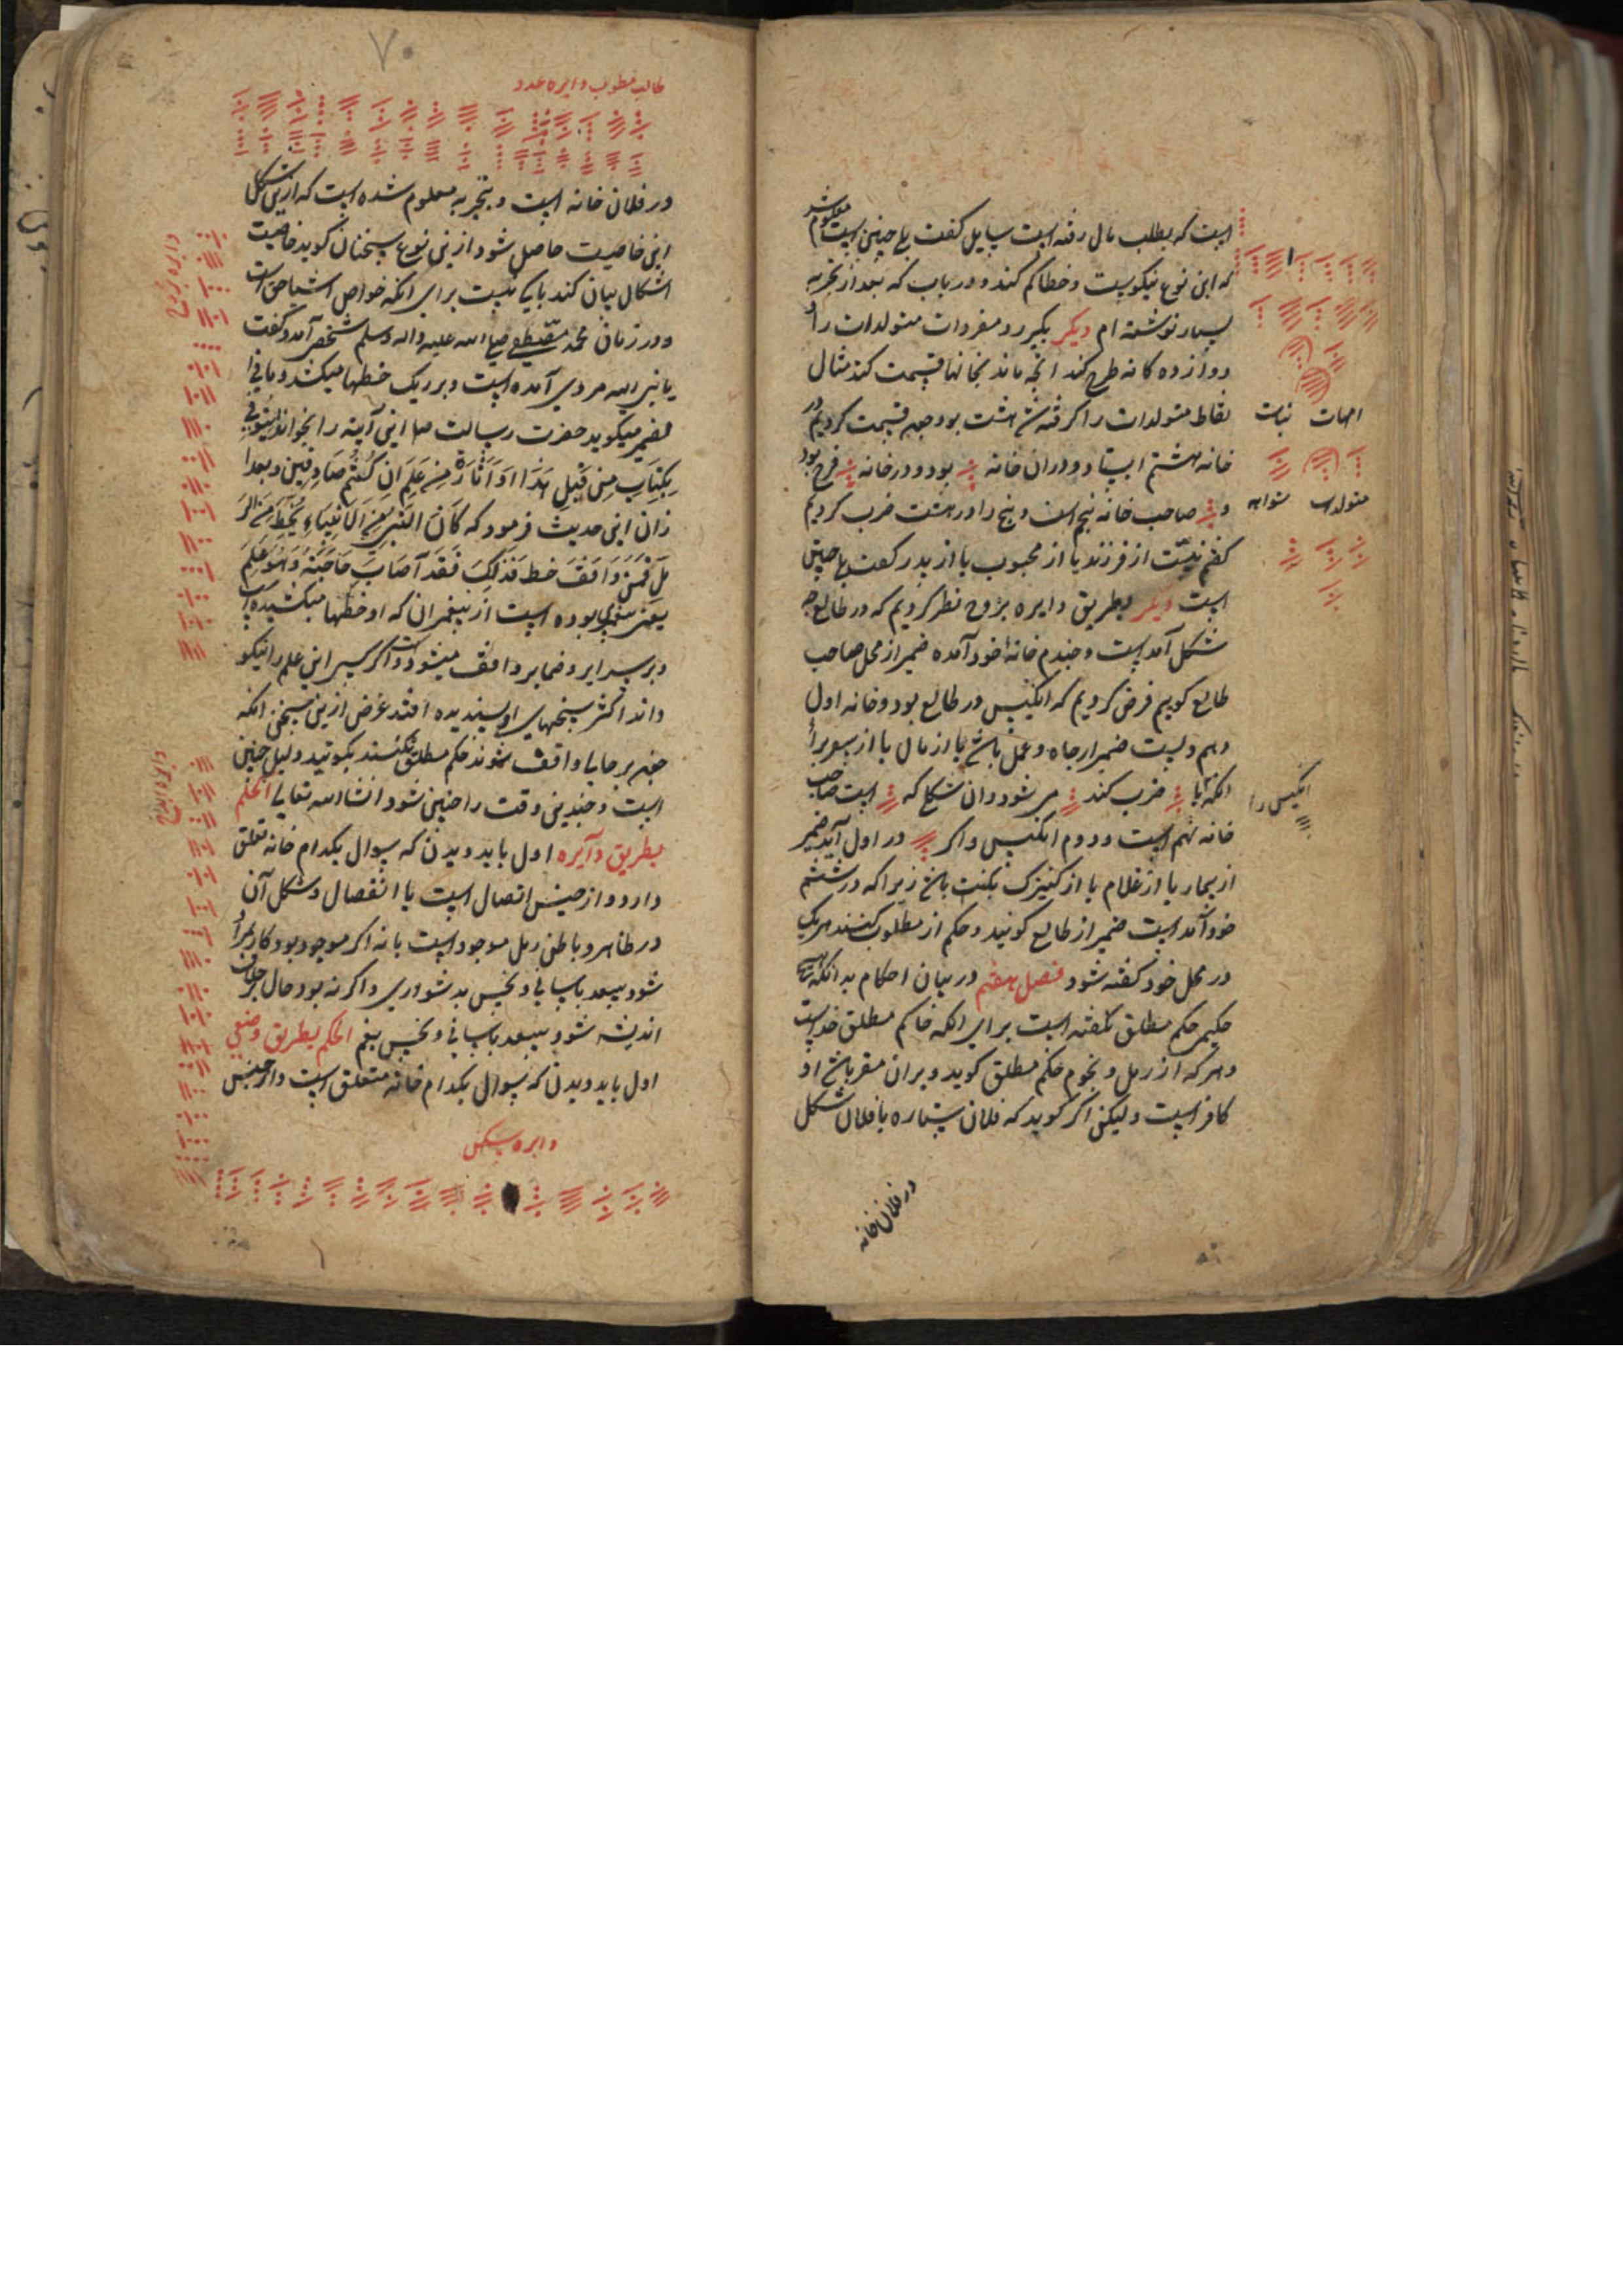 است که بطلب مال رفته است سایل گفت بلی چنین است معلوم شد
که این نوع نیکوست و خطا کم کند و درباب که بعد از تجربه
بسیار نوشته ام دیگر بگیرد و مفردات متولدات را
دوازده کانه طرح کند انچه ماند بخانها قسمت کند مثال
نقاط متولدات را گرفته شد هشت بود چون قسمت کردیم در
خانه هشتم ایستاد و دران خانه بود و در خانه فرح بود
و صاحب خانه پنج است و پنج را در هشت ضرب کردیم
گفتم نیت از فرزند یا از محبوب یا از پدر گفت بلی چنین
است دیگر بطریق دایره بزوح نظر کردیم که در طالع چه
شکل آمد است و چندم خانهٔ خود آمده ضمیر از محل صاحب
طالع گوییم فرض کردیم که انکیس در طالع بود و خانه اول
دهم ویست ضمیر از جاه و عمل باشد یا از مال یا از سفر برا
انکه با ضرب کند می شود و ان شکل که است صاحب
خانه نهم است و دوم انکیس و اکر در اول آید ضمیر
از بیمار یا از غلام یا از کنیزک بکنت باشد زیرا که در ششم
خود آمد است ضمیر از طالع گویند و حکم از مطلوب کنند هریک
در محل خود گفته شود فصل هفتم در بیان احکام بدانکه هیچ
حکیم حکم مطلق نگفته است برای انکه حاکم مطلق خداست
و هر که از رمل و نجوم حکم مطلق گوید و بران مقر باشد او
کافر است و لیکن اگر گوید که فلان ستاره یا فلان شکل
در فلان خانه
امهات نبات
متولدات
انکیس را
۷۰
طالب مطلوب دایره عدد
در فلان خانه است و بتجربه معلوم شده است که ازین شکل
این خاصیت حاصل شود ازین نوع سخنان گوید خاصیت
اشکال بیان کند باکی نیست برای انکه خواص اشیا حق است
و در زمان محمد مصطفی صلی الله علیه واله وسلم شخصی آمد و گفت
یا نبی الله مردی آمده است و بر ریک خطها میکشد و مافی
لضمیر میگوید حضرت رسالت صلی این آیه را بخواند ایتونی
بکتاب من قبل هذا او اثارة من علم ان کنتم صادقین و بعد ا
زان این حدیث فرمود که کان النبی من الانبیاء یخط من الر
مل فمن وافق خط فذلک فقد آصاب حاجته و هو علم
یعنی پیغمبری بوده است از پیغمبران که او خطها میکشیده است
و بر سرایر و ضمایر واقف میشود و اگر کسی این علم را نیکو
داند اکثر سخنهای او پسندیده افتد غرض ازین سخن انکه
چون بر جایی واقف شوند حکم مطلق نکنند بگویند دلیل چنین
است و چندین وقت را چنین شود انشاالله تعالی الحکم
بطریق دآیره اول باید دیدن که سوال بکدام خانه تعلق
دارد و از جنس اتصال است یا انفصال و شکل آن
در ظاهر و باطن رمل موجود است یا نه اگر موجود بود کار برا
شود بسعد باسانی و نحس بدشواری و اگر نه بود حال خلاف
اندیشه شود بسعد باسانی و نحس بغم الحکم بطریق وضعی
اول باید دیدن که سوال بکدام خانه متعلق است و از جنس
دایره سکن